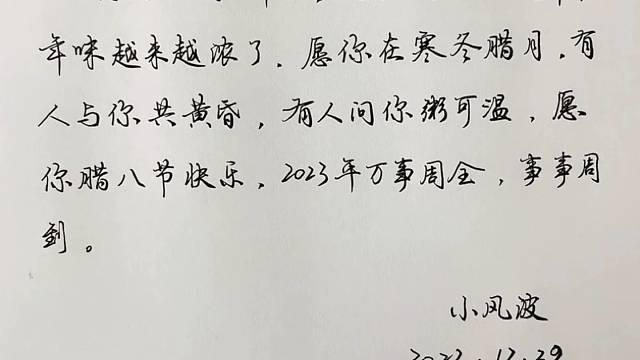 年味越来越浓了。愿你在寒冬腊月,有
人与你共黄昏,有人问你粥可温,愿
你腊八节快乐,2023年万事周全,事事周
到。
小风波
2022.12.29